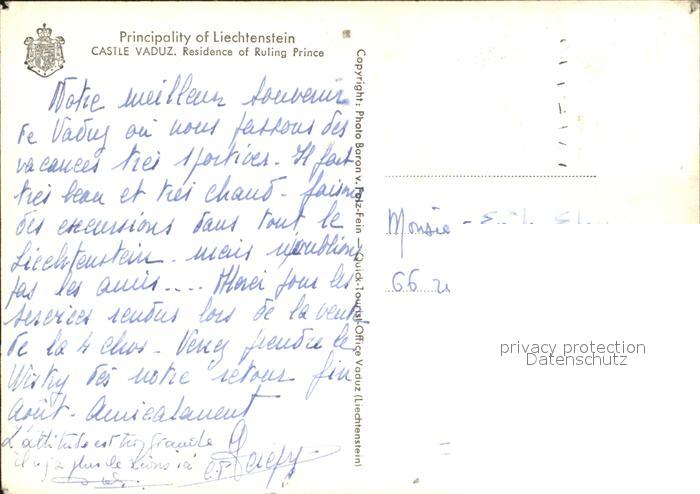 Principality of Liechtenstein
CASTLE VADUZ. Residence of Ruling Prince
Notre meilleur souvenir
de Vaduz où nous passons des
vacances très sportives - Il fait
très beau et très chaud - faisons
des excursions dans tout le
Liechtenstein - mais n'oublions
pas les amis.... Merci pour les
services rendus lors de la vente
de la 4 chos - Venez prendre le
Wisky dès notre retour fin
Août - Amicalement
L'altitude est trop grande
il n'y a plus de lions ici
Copyright: Photo Baron v. Falz-Fein — Quick-Tourist-Office Vaduz (Liechtenstein)
Monsie
66
privacy protection
Datenschutz